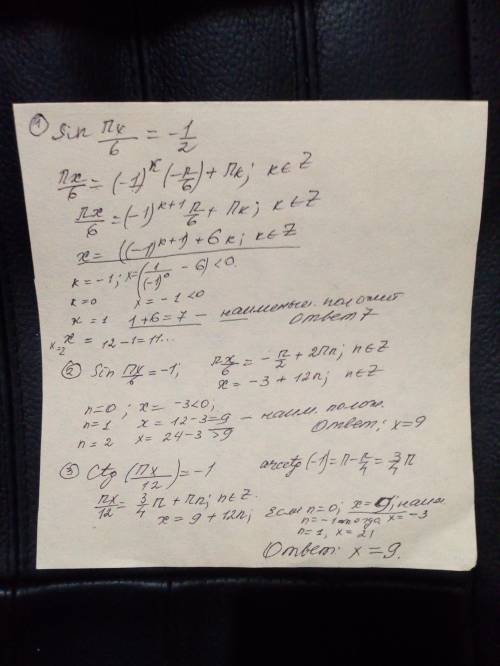 ① Sin πx/6 = -1/2
πx/6 = (-1)^k (-π/6) + πk; k∈Z
πx/6 = (-1)^(k+1) π/6 + πk; k∈Z
x = ((-1)^(k+1)) + 6k; k∈Z
k = -1; x = (1/(-1)^0 - 6) < 0.
k = 0 x = -1 < 0
k = 1 1+6 = 7 — наименьш. положит
Ответ 7
k=2 x = 12-1 = 11...
② Sin πx/6 = -1; πx/6 = -π/2 + 2πn; n∈Z
x = -3 + 12n; n∈Z
n=0; x = -3<0;
n=1 x = 12-3 = 9 — наим. полож.
n = 2 x = 24-3 > 9 Ответ: x=9
③ Ctg (πx/12) = -1 arcctg(-1) = π - π/4 = 3/4 π
πx/12 = 3/4 π + πn; n∈Z.
x = 9 + 12n; Если n=0; x = 9, наим
n = -1 тогда x = -3
n = 1, x = 21
Ответ: x = 9.